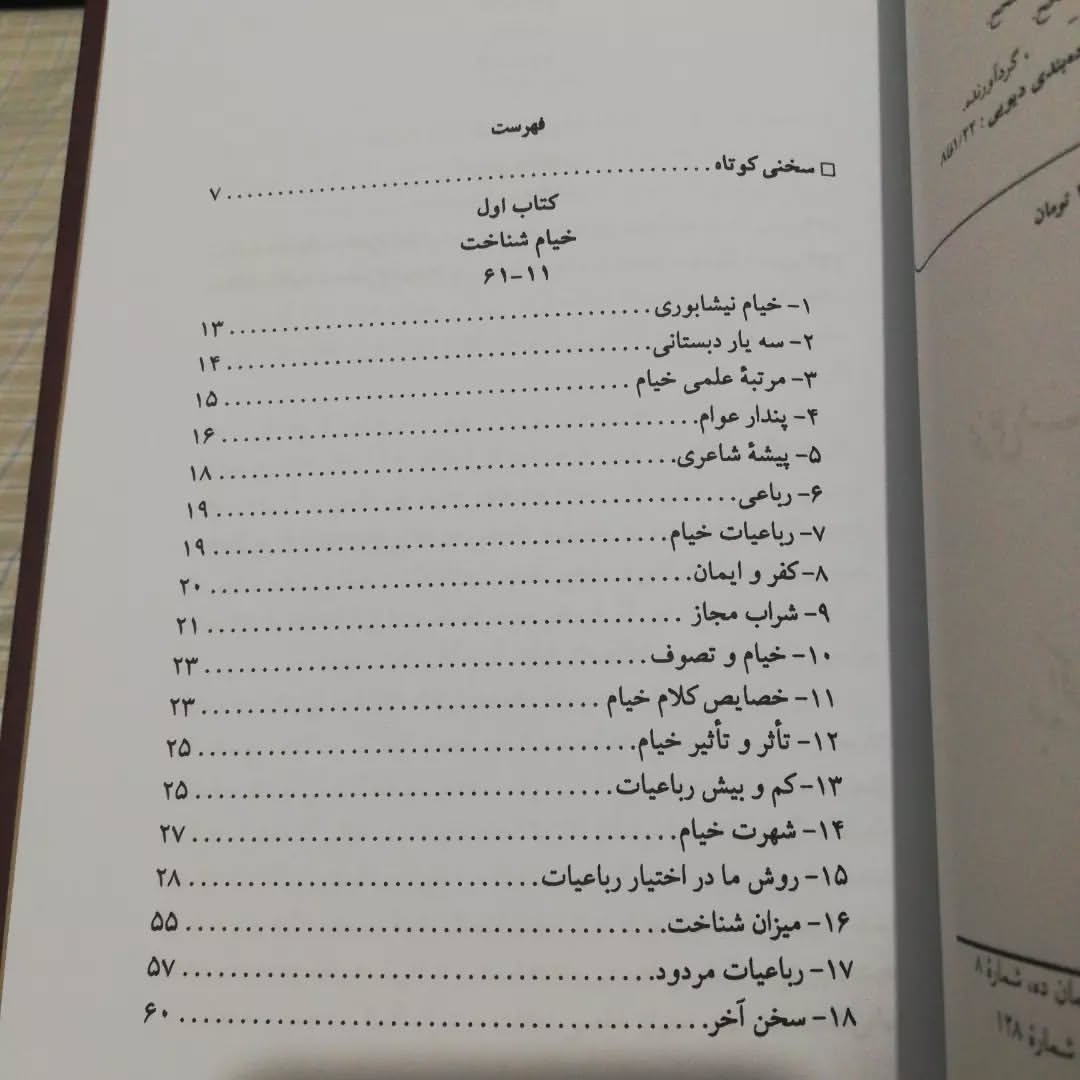 فهرست
□ سخنی کوتاه .......... ۷
کتاب اول
خیام شناخت
۱۱-۶۱
۱- خیام نیشابوری .......... ۱۳
۲- سه یار دبستانی .......... ۱۴
۳- مرتبهٔ علمی خیام .......... ۱۵
۴- پندار عوام .......... ۱۶
۵- پیشهٔ شاعری .......... ۱۸
۶- رباعی .......... ۱۹
۷- رباعیات خیام .......... ۱۹
۸- کفر و ایمان .......... ۲۰
۹- شراب مجاز .......... ۲۱
۱۰- خیام و تصوف .......... ۲۳
۱۱- خصایص کلام خیام .......... ۲۳
۱۲- تأثر و تأثیر خیام .......... ۲۵
۱۳- کم و بیش رباعیات .......... ۲۵
۱۴- شهرت خیام .......... ۲۷
۱۵- روش ما در اختیار رباعیات .......... ۲۸
۱۶- میزان شناخت .......... ۵۵
۱۷- رباعیات مردود .......... ۵۷
۱۸- سخن آخر .......... ۶۰
گردآورنده
دیویی :
تومان
ده، شمارهٔ ۸
شمارهٔ ۱۲۸